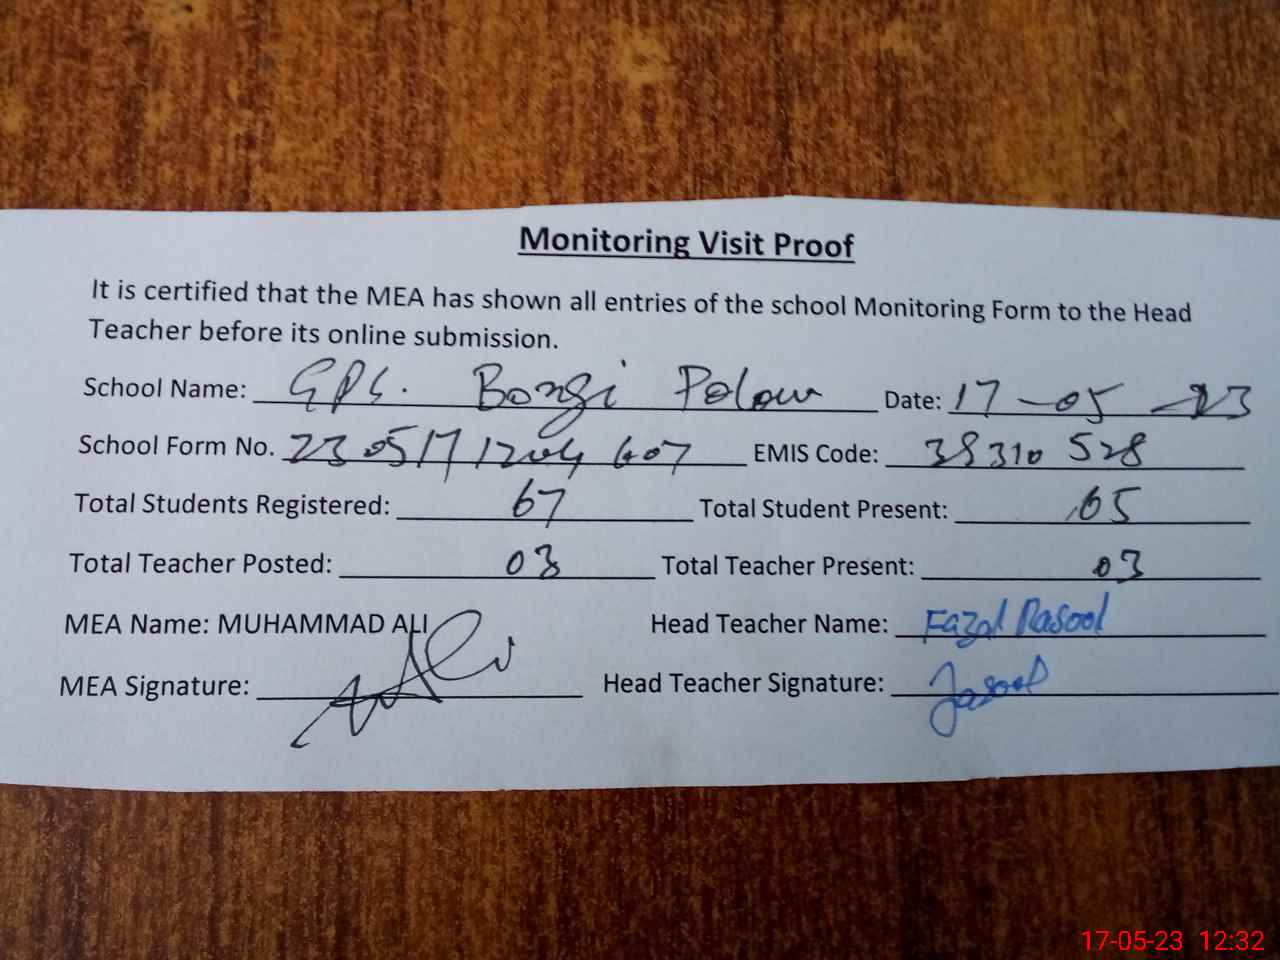 Monitoring Visit Proof
It is certified that the MEA has shown all entries of the school Monitoring Form to the Head
Teacher before its online submission.
School Name: GPS. Bongi Polow Date: 17-05-23
School Form No. 230517 1204 607 EMIS Code: 38310 528
Total Students Registered: 67 Total Student Present: 65
Total Teacher Posted: 03 Total Teacher Present: 03
MEA Name: MUHAMMAD ALI Head Teacher Name: Fazal Rasool
MEA Signature: Head Teacher Signature:
17-05-23 12:32